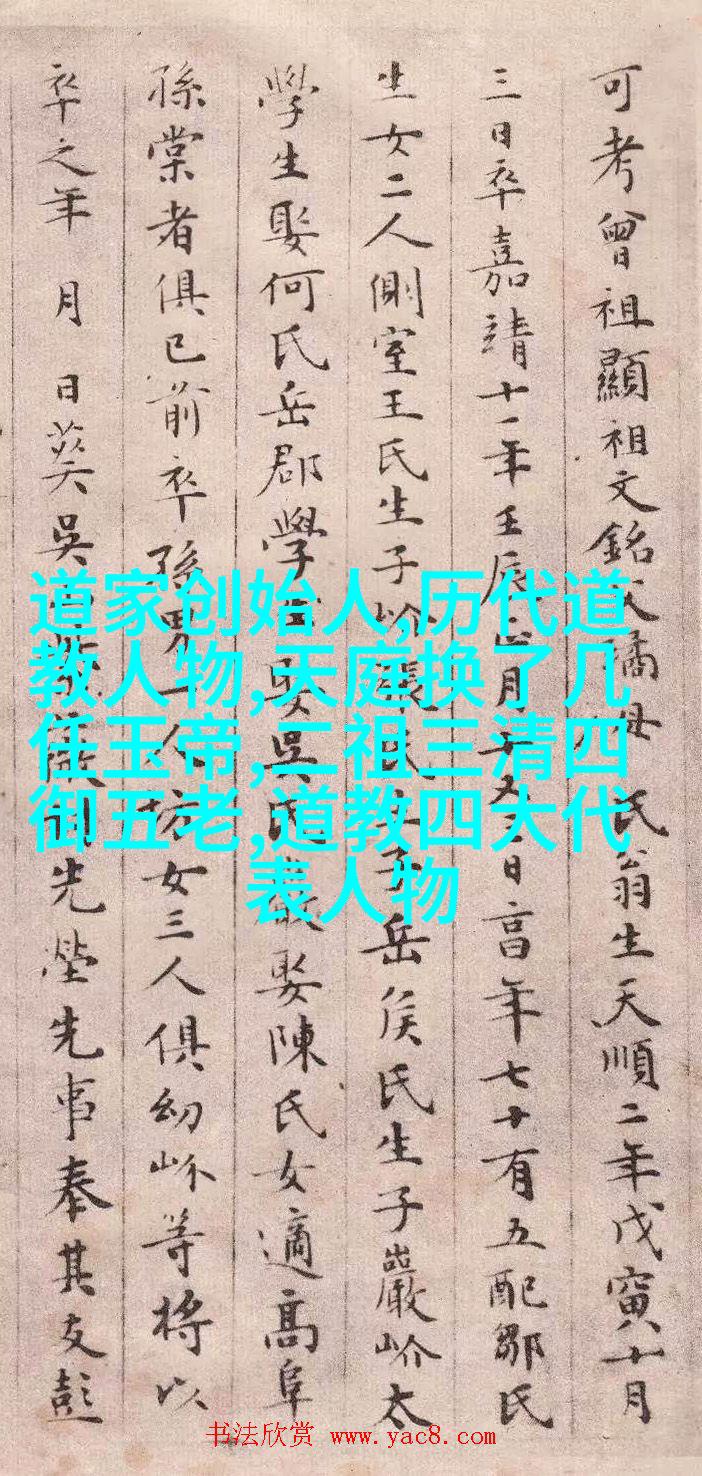 可考曾祖顯祖文銘父璚母 氏翁生天順二年戊寅十月
三日卒嘉靖十一年壬辰正月 日高年七十有五配鄒氏
生女二人側室王氏生子岕張氏生子岳侯氏生子巖岕太
學生娶何氏岳郡學生娶吳氏 娶陳氏女適高阜
孫棠者俱已前卒孫男一人坊女三人俱幼岕等將以
卒之年 月 日葬吳 先塋先事奉其友彭
道家创始人,历代道
教人物,天庭换了几
任玉帝,二祖三清四
御五老,道教四大代
表人物
书法欣赏 www.yac8.com